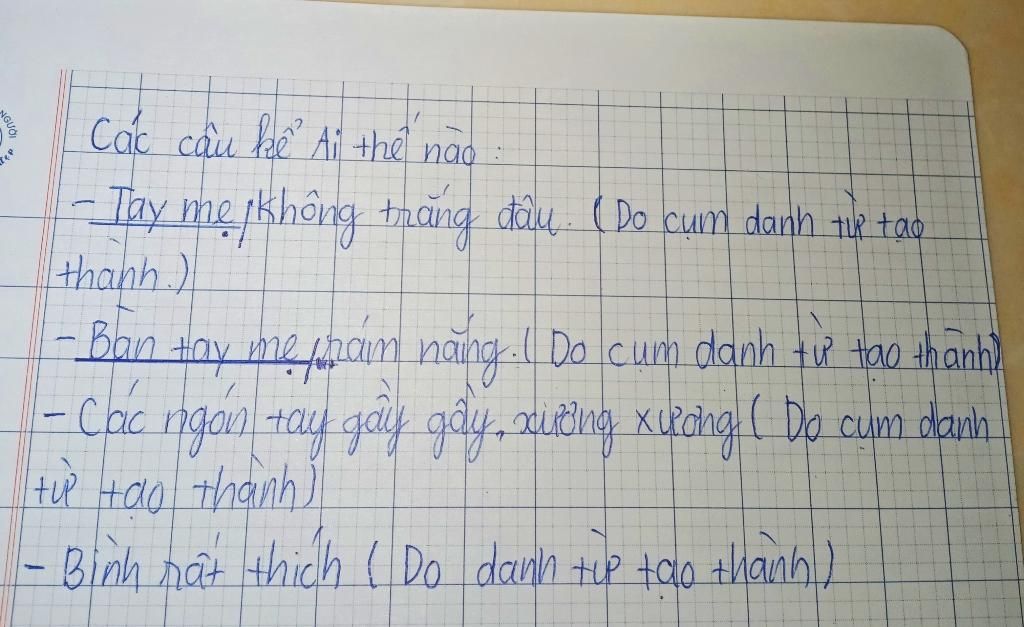 Các câu kể Ai thế nào:
- Tay mẹ/không trắng đâu. (Do cụm danh từ tạo
thành.)
- Bàn tay mẹ/rám nắng. (Do cụm danh từ tạo thành)
- Các ngón tay gầy gầy, xương xương (Do cụm danh
từ tạo thành)
- Bình rất thích (Do danh từ tạo thành)
NGƯỜI